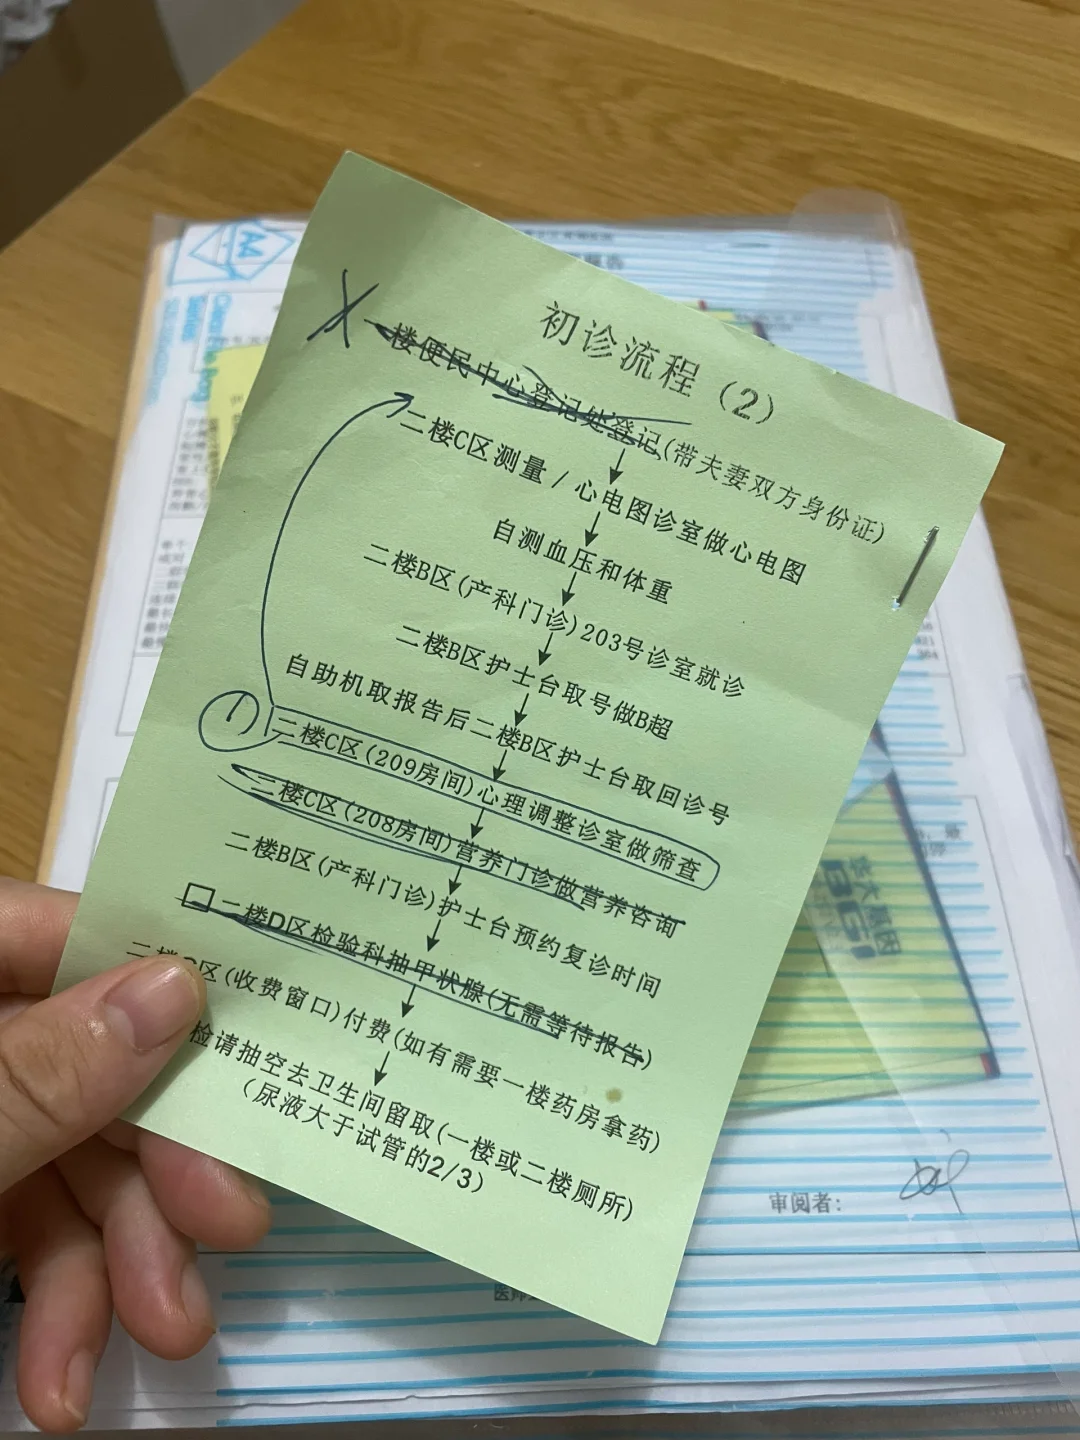 初诊流程（2）
一楼便民中心登记处登记(带夫妻双方身份证)
二楼C区测量/心电图诊室做心电图
自测血压和体重
二楼B区(产科门诊)203号诊室就诊
二楼B区护士台取号做B超
自助机取报告后二楼B区护士台取回诊号
①
二楼C区(209房间)心理调整诊室做筛查
二楼C区(208房间)营养门诊做营养咨询
二楼B区(产科门诊)护士台预约复诊时间
二楼D区检验科抽甲状腺(无需等待报告)
区(收费窗口)付费(如有需要一楼药房拿药)
检请抽空去卫生间留取(一楼或二楼厕所)
(尿液大于试管的2/3)
A4
审阅者: